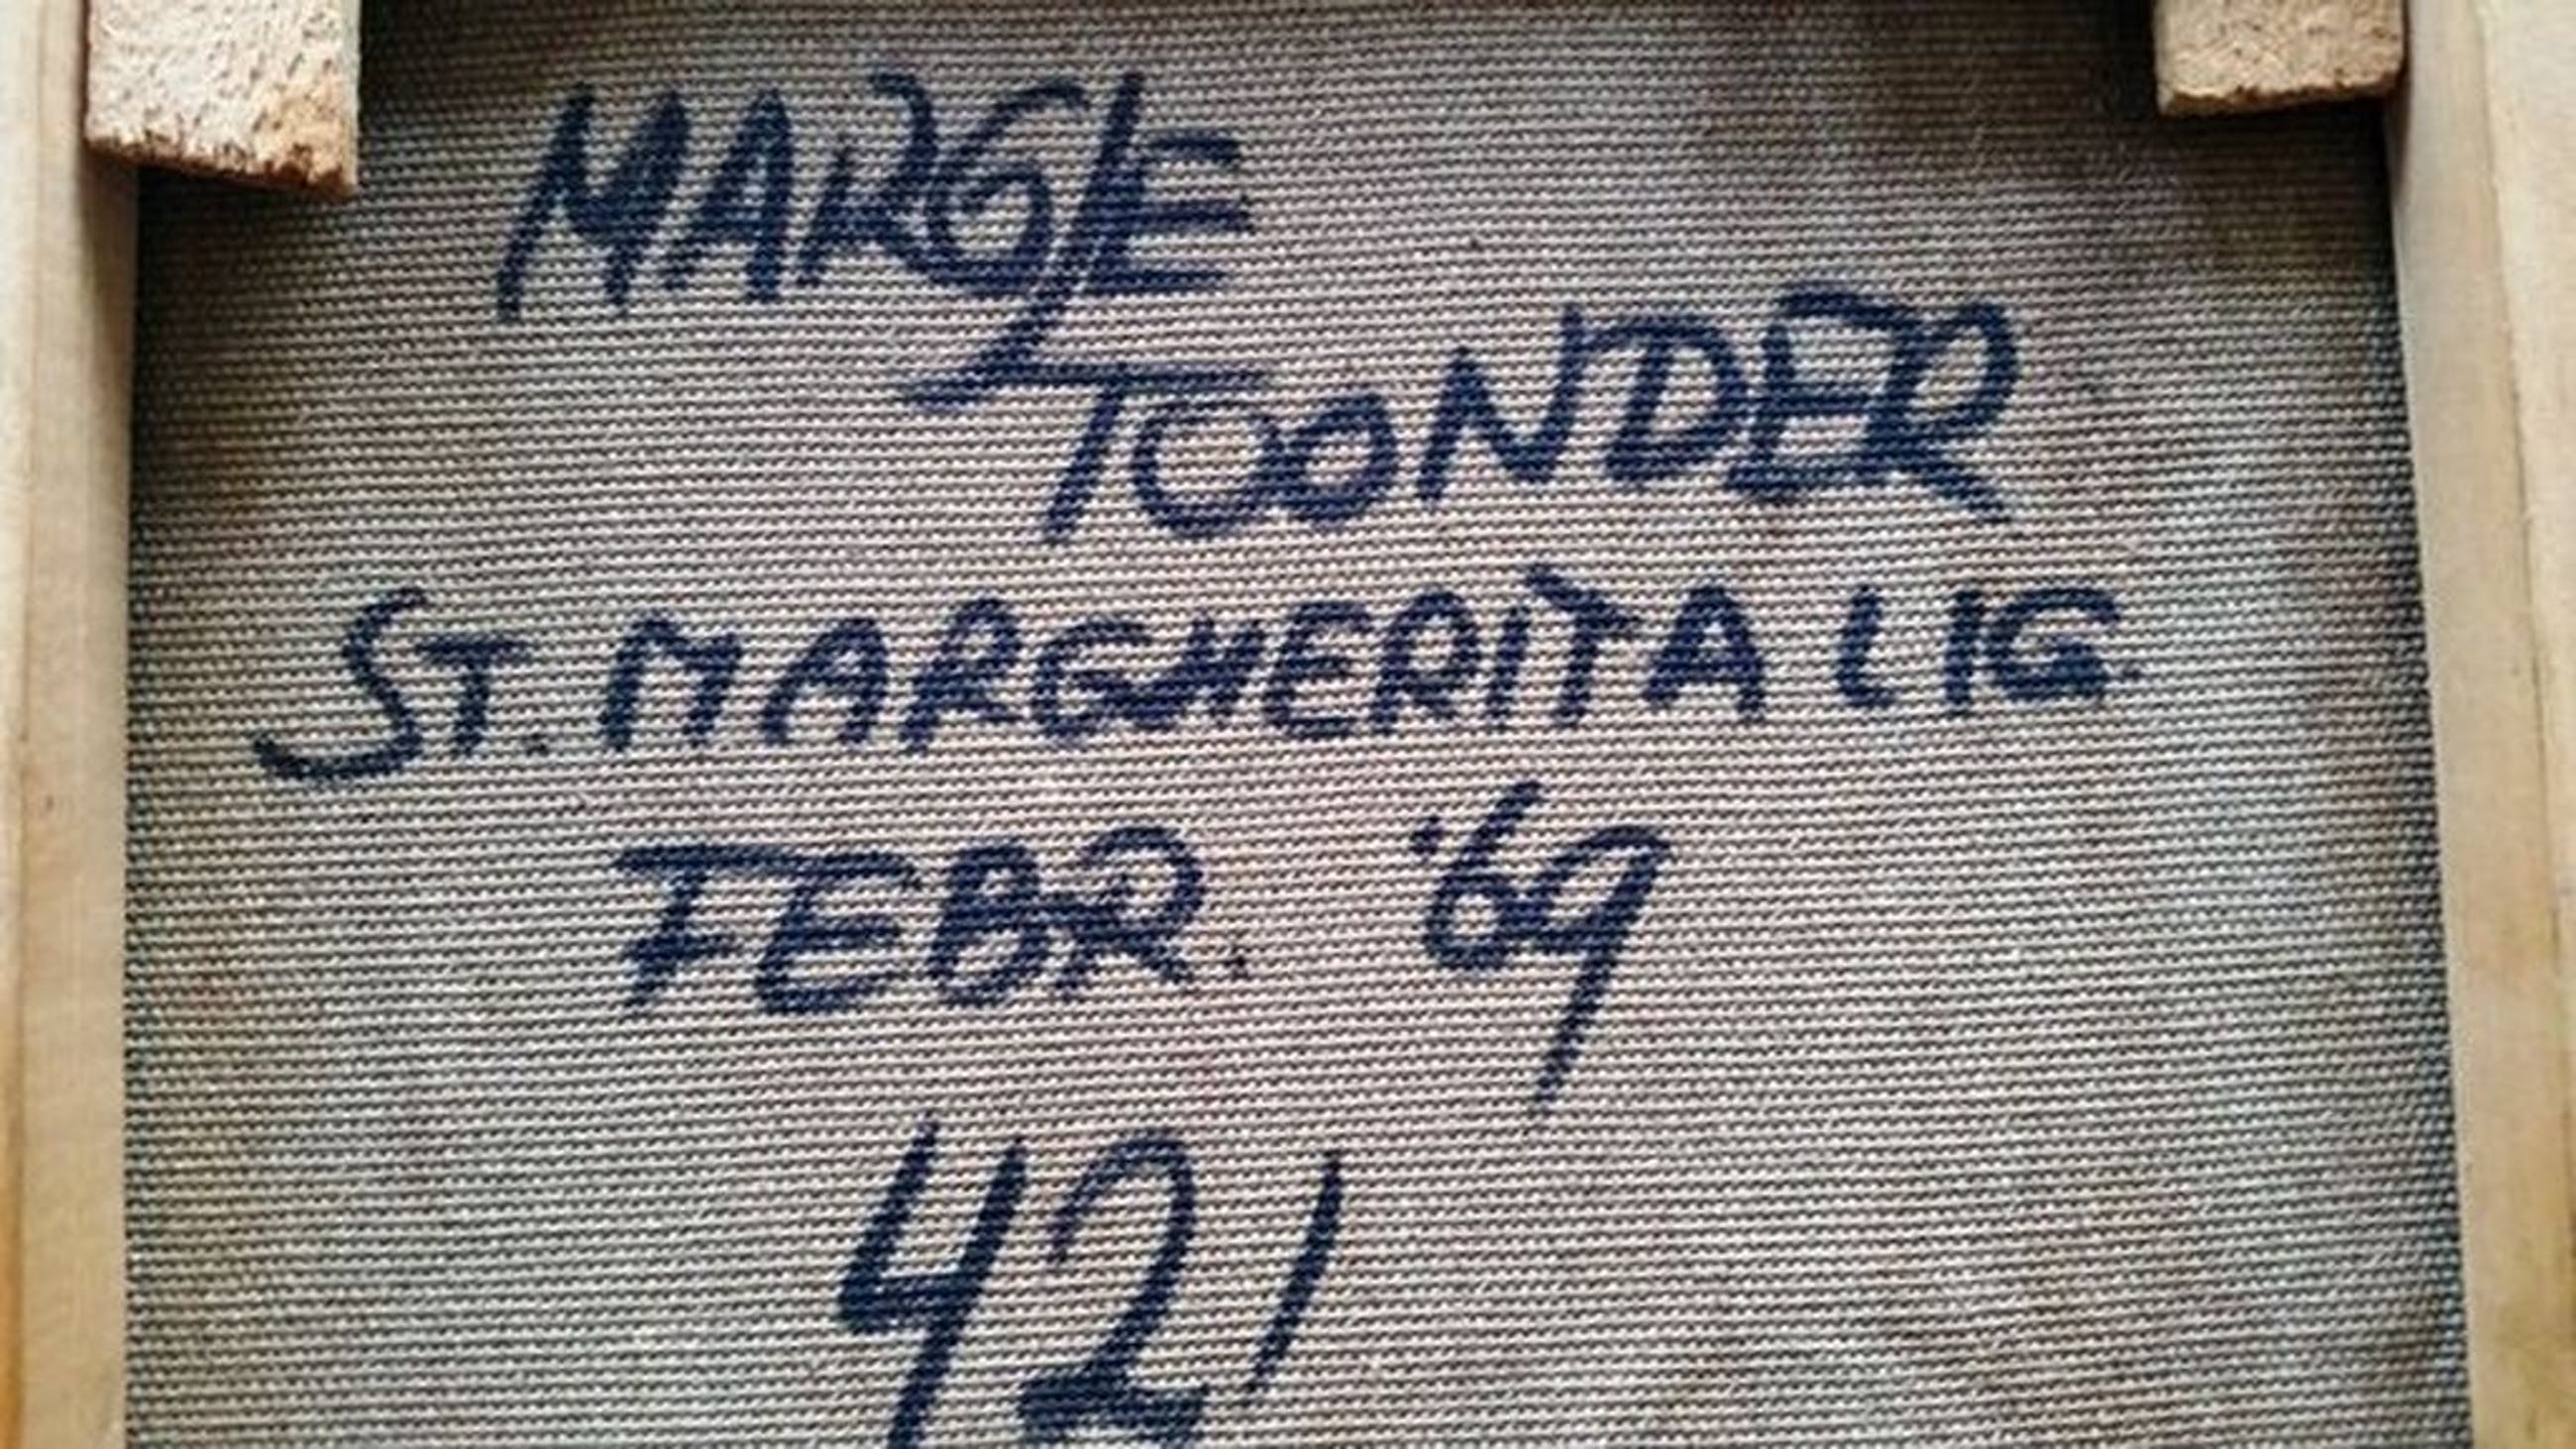 MARGIE
TOONDER
ST. MARGHERITA LIG.
FEBR. '69
421